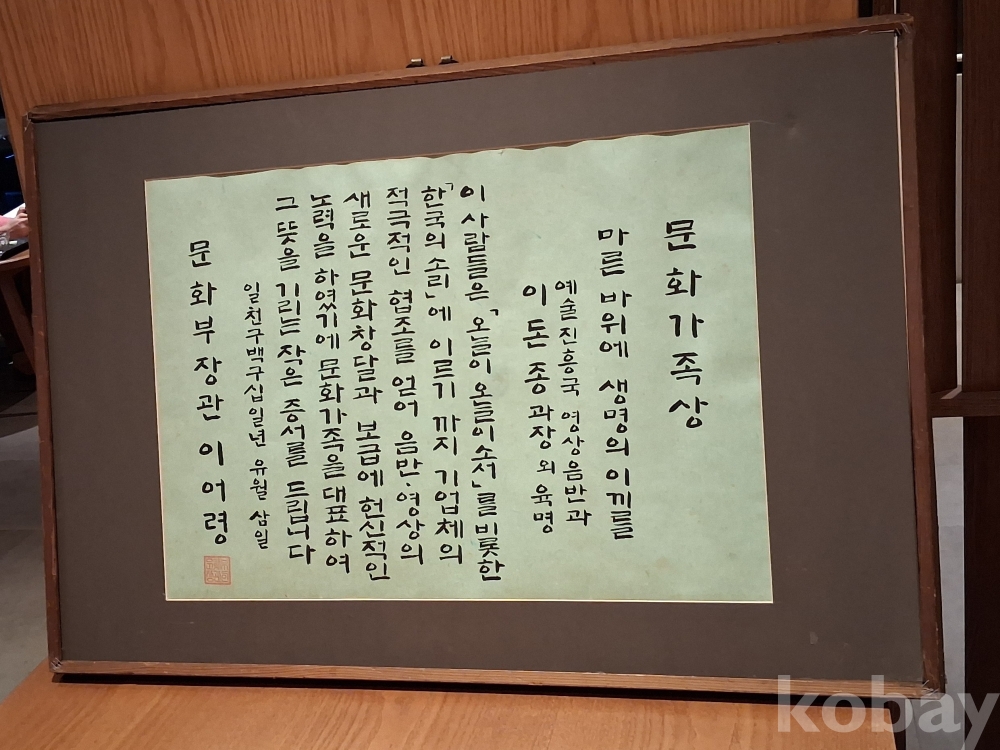 문화가족상
마른 바위에 생명의 이끼를
예술진흥국 영상음반과
이돈종 과장 외 육명
이 사람들은 「오늘이 오늘이소서」를 비롯한
「한국의 소리」에 이르기 까지 기업체의
적극적인 협조를 얻어 음반·영상의
새로운 문화창달과 보급에 헌신적인
노력을 하였기에 문화가족을 대표하여
그 뜻을 기리는 작은 증서를 드립니다
일천구백구십일년 유월 삼일
문화부장관 이어령
kobay